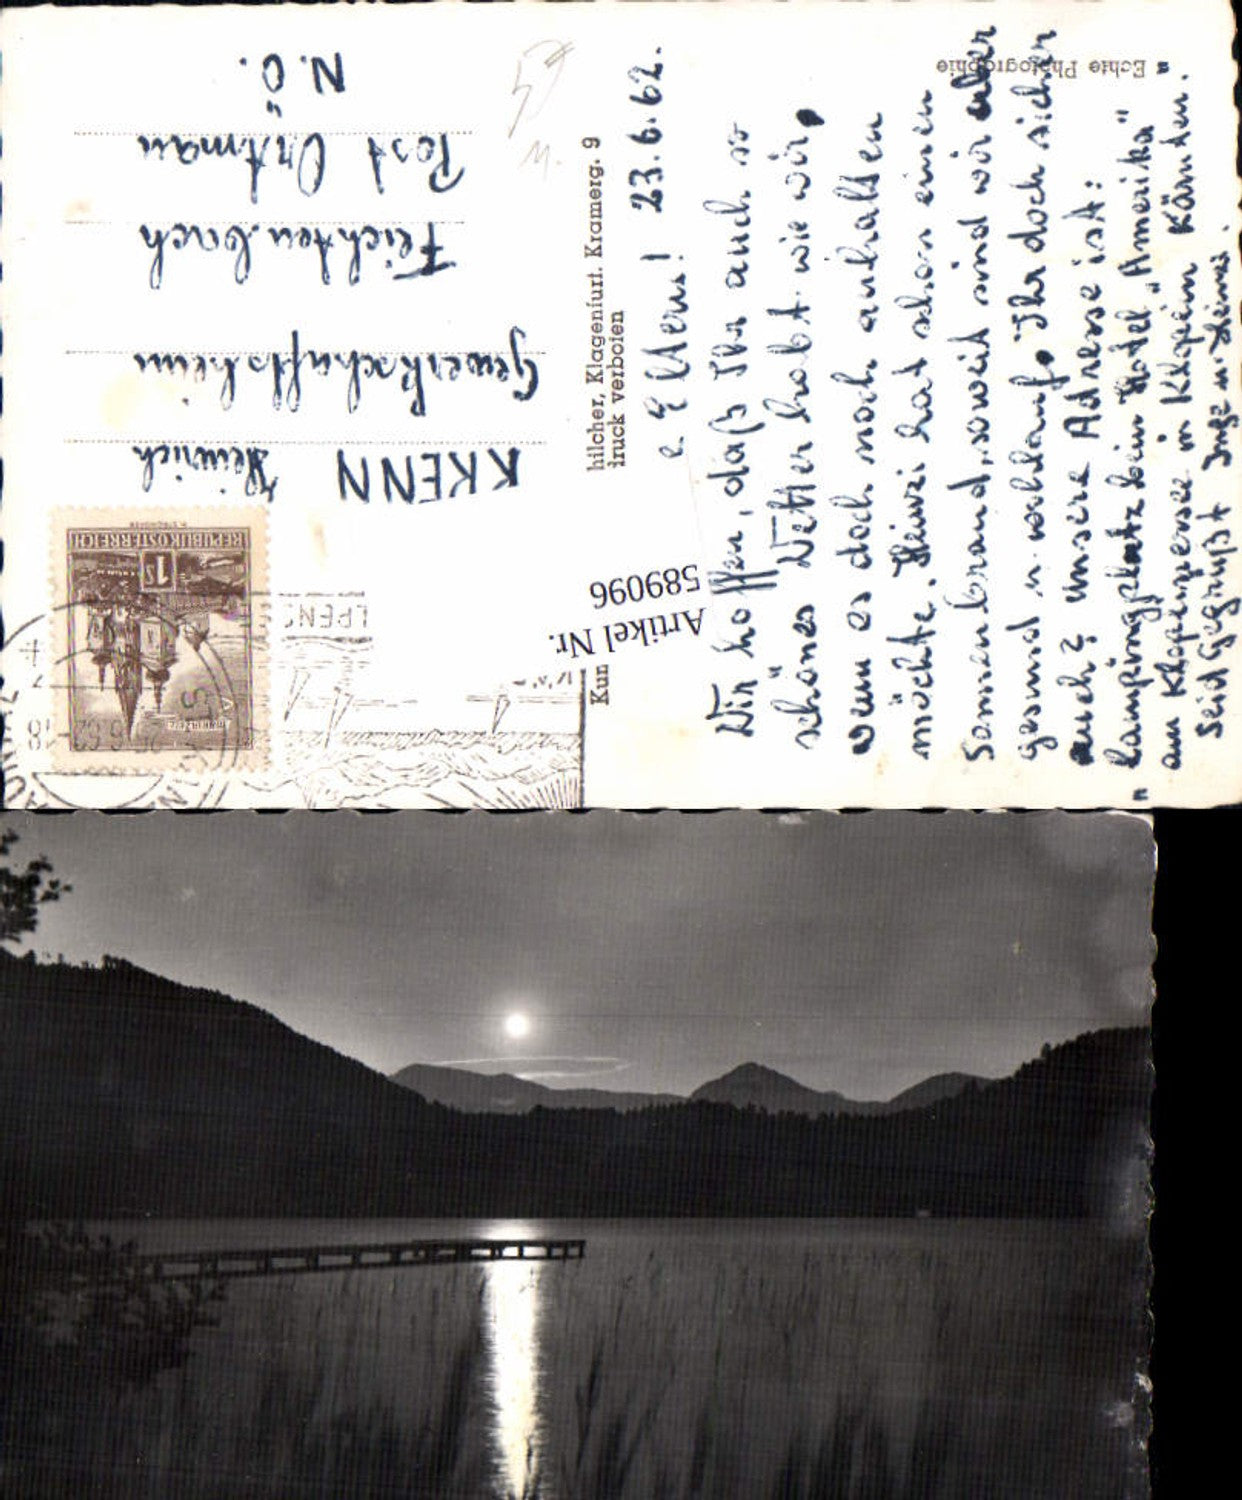 23.6.62.
e Eltern!
Wir hoffen, daß Ihr auch so
schönes Wetter habt wie wir,
wenn es doch noch anhalten
möchte. Heinzi hat schon einen
Sonnenbrand, soweit sind wir aber
gesund u. wohlauf, Ihr doch sicher
auch? unsere Adresse ist:
"Campingplatz beim Hotel "Amerika"
am Klopeinersee in Klopein Kärnten."
Seid Gegrüßt Inge u. Heinzi.
Echte Photographie
hilcher, Klagenfurt. Kramerg. 9
druck verboten
Kun
Artikel Nr.
589096
KRENN Heinrich
Gewerkschaftsheim
Feichtenbach
Post Ortmann
N.Ö.
REPUBLIK ÖSTERREICH
1S
LPENS